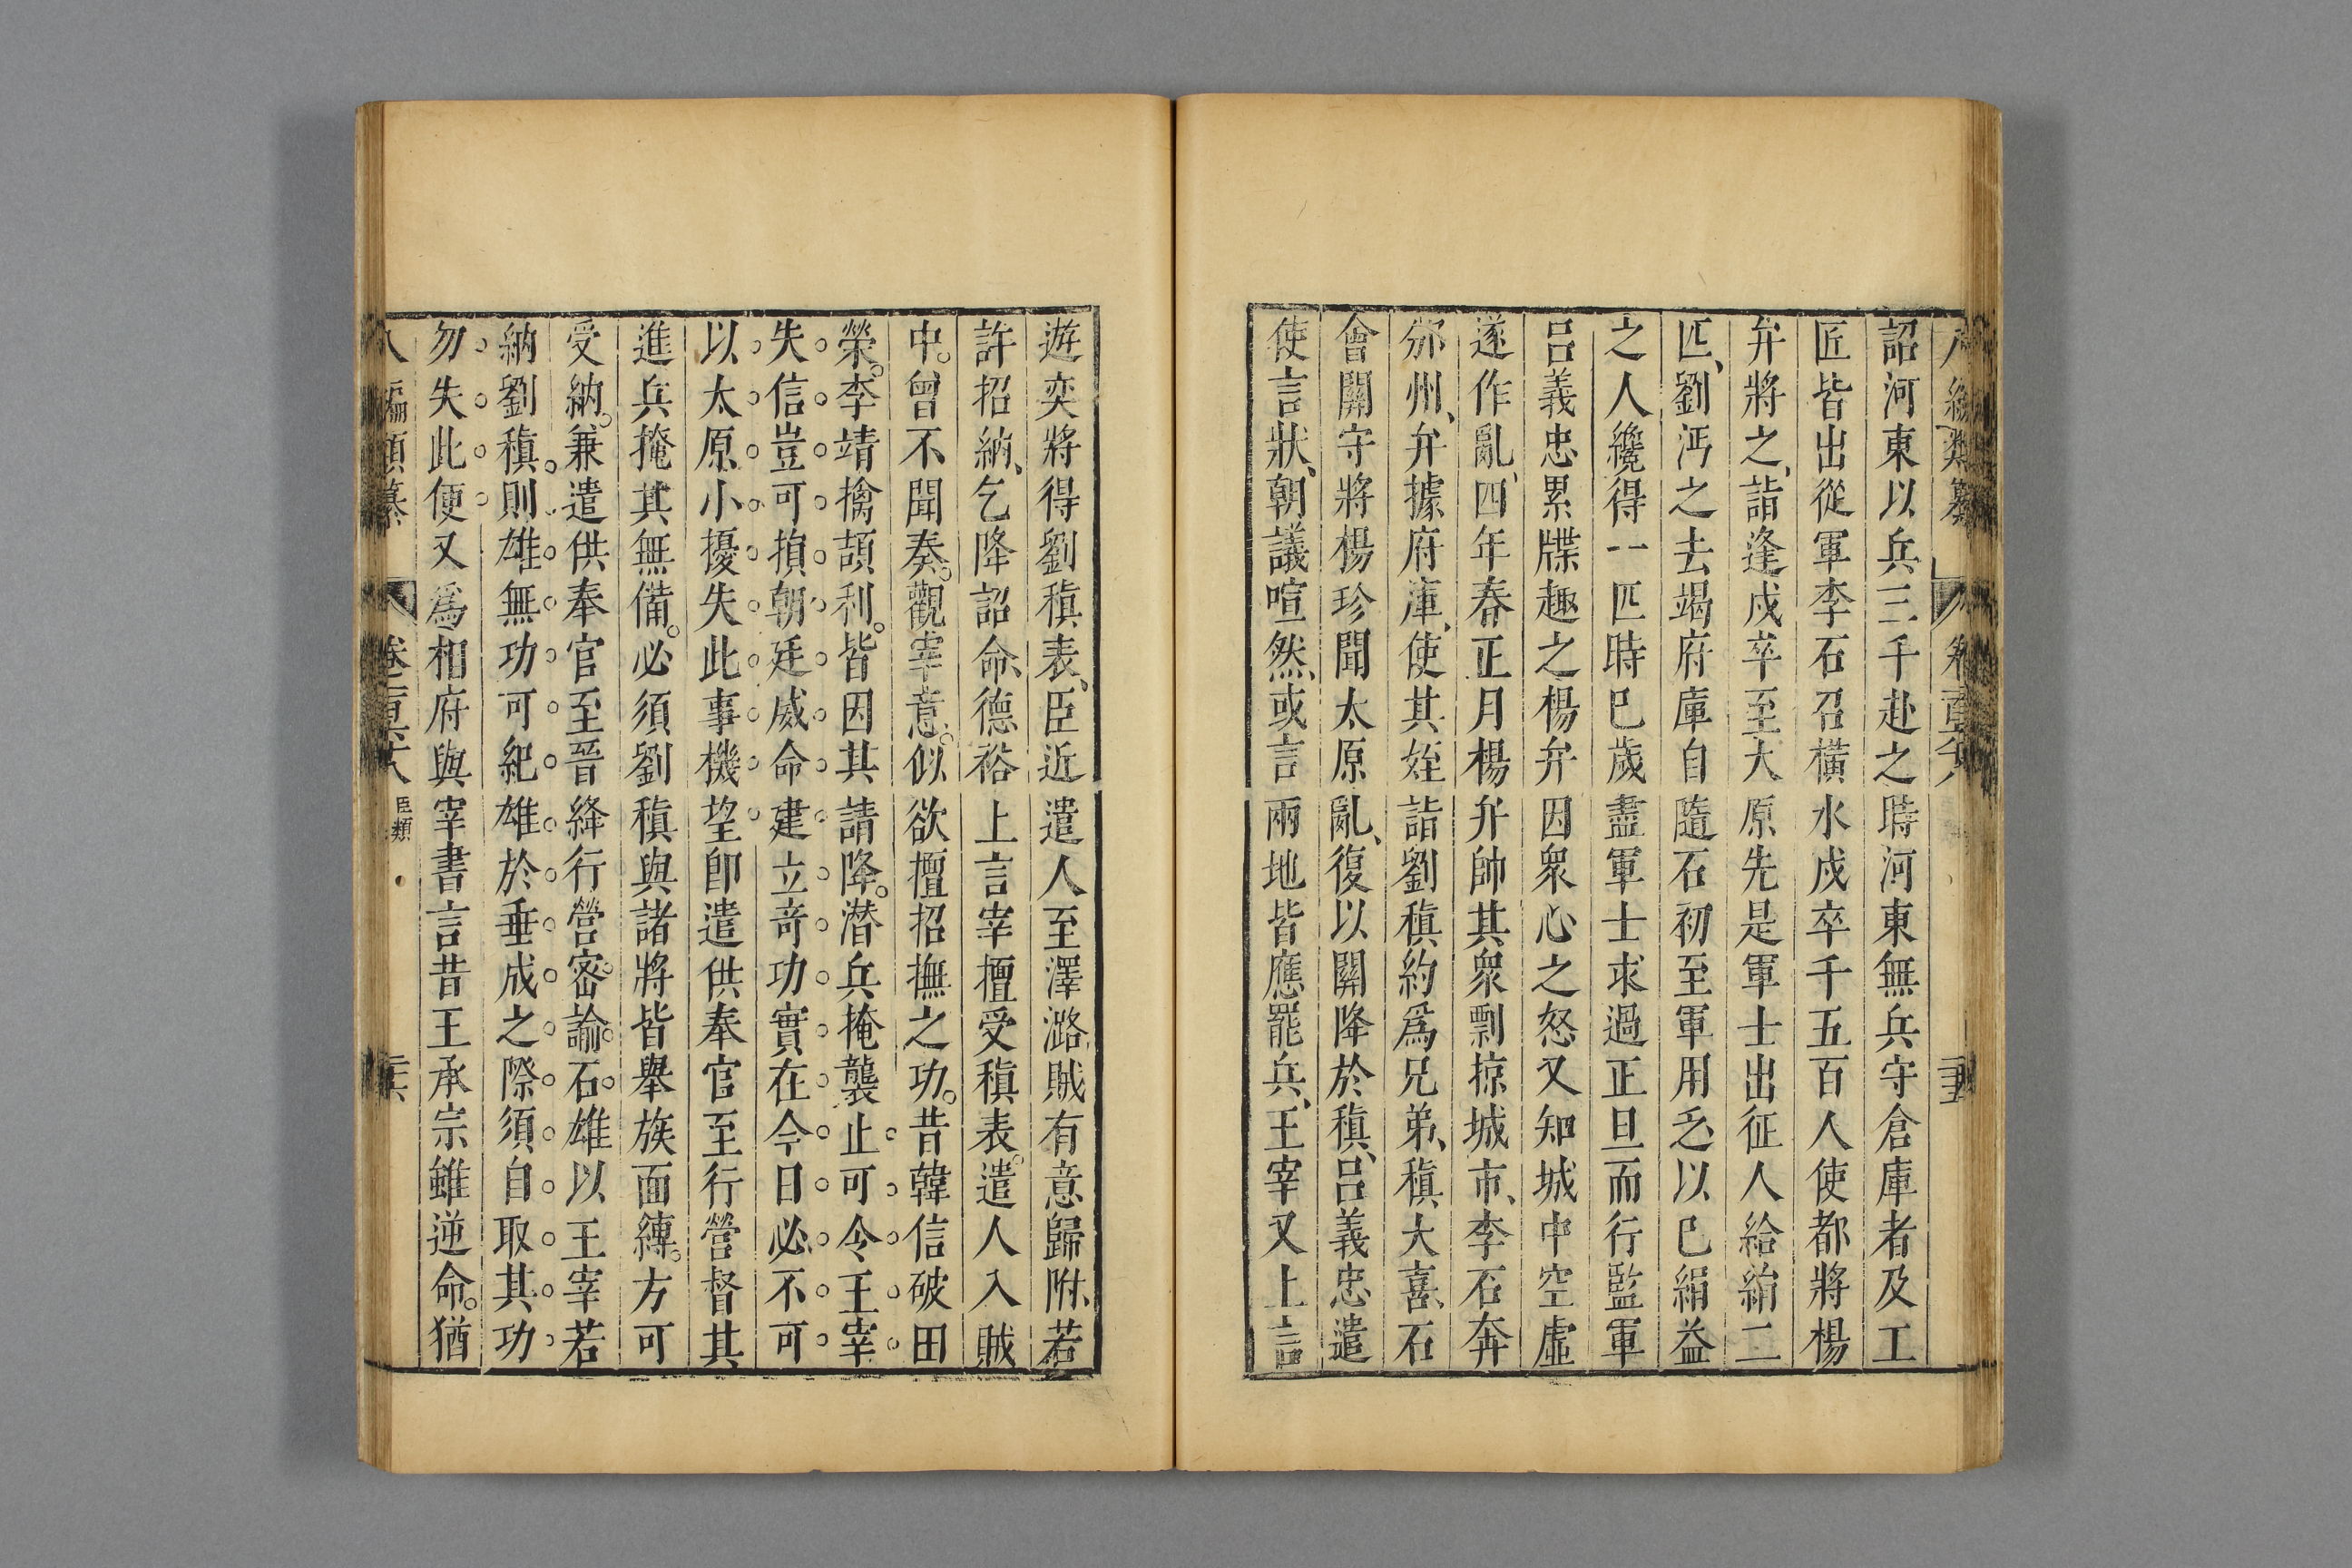 詔河東以兵三千赴之時河東無兵守倉庫者及工
匠皆出從軍李石召橫水戍卒千五百人使都將楊
弁將之、詣逢戍卒至太原先是軍士出征人給絹二
匹、劉沔之去竭府庫自隨石初至軍用乏以巳絹益
之人纔得一匹時巳歲盡軍士求過正旦而行監軍
呂義忠累牒趣之楊弁因衆心之怒又知城中空虛
遂作亂、四年春正月楊弁帥其衆剽掠城市、李石奔
邠州、弁據府庫、使其姪詣劉稹約爲兄弟、稹大喜、石
會關守將楊珍聞太原亂、復以關降於稹、呂義忠遣
使言狀、朝議喧然、或言兩地皆應罷兵、王宰又上言
遊奕將得劉稹表、臣近遣人至澤潞賊有意歸附、若
許招納、乞降詔命、德裕上言宰擅受稹表。遣人入賊
中。曾不聞奏。觀宰意。似欲擅招撫之功。昔韓信破田
榮。李靖擒頡利。皆因其請降。潛兵掩襲止可令王宰
失信豈可損朝廷威命建立竒功實在今日必不可
以太原小擾失此事機望卽遣供奉官至行營督其
進兵掩其無備。必須劉稹與諸將皆舉族面縳。方可
受納。兼遣供奉官至晉絳行營。密諭。石雄以王宰若
納劉稹。則雄無功可紀雄於垂成之際須自取其功
勿失此便又爲相府與宰書言昔王承宗雖逆命。猶
臣類